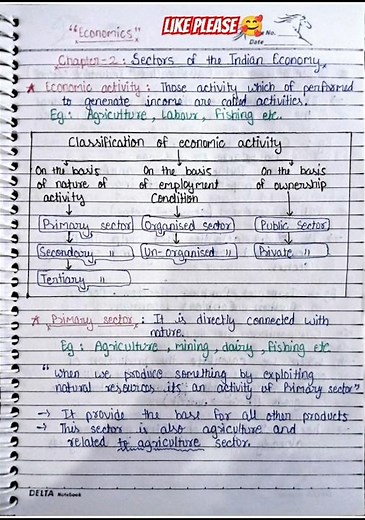 "Economics"
LIKE PLEASE
No.
Date
Chapter-2: Sectors of the Indian Economy
★ Economic activity: Those activity which of performed
to generate income are called activities.
Eg: Agriculture, Labour, Fishing etc.
Classification of economic activity
On the basis
of nature of
activity
Primary sector
Secondary "
Tertiary "
On the basis
of employment
Condition
Organised sector
Un-organised "
On the basis
of ownership
Public Sector
Private "
★ Primary sector: It is directly connected with
nature.
Eg: Agriculture, mining, dairy, fishing etc
"When we produce something by exploiting
natural resources its an activity of Primary sector"
→ It provide the base for all other products
→ This sector is also agriculture and
related to agriculture sector.
DELTA Notebook